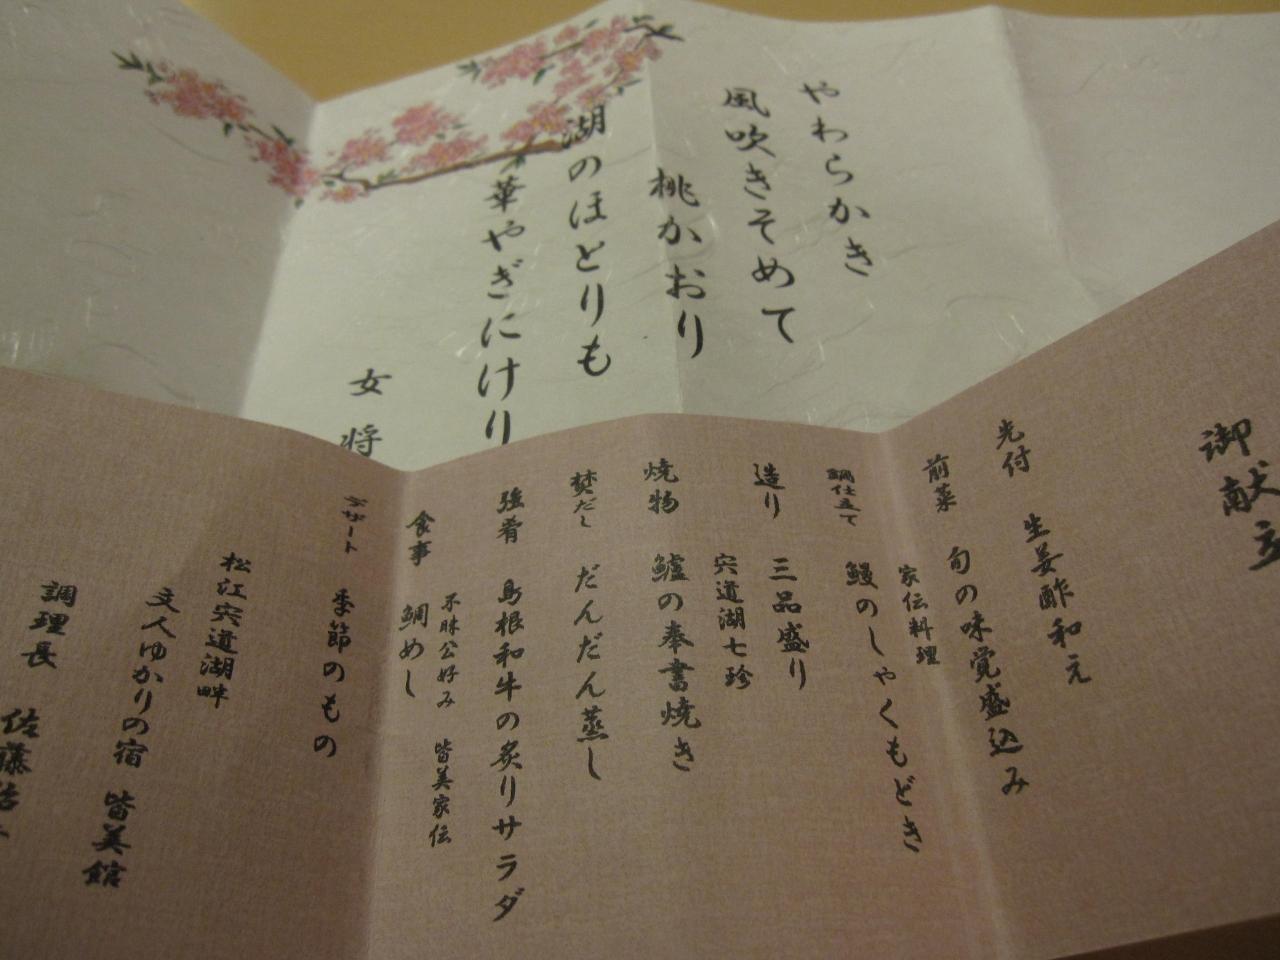 やわらかき
風吹きそめて
桃かおり
湖のほとりも
華やぎにけり
女将
御献立
先付 生姜酢和え
前菜 旬の味覚盛込み
家伝料理
鯛仕立て 鰻のしゃくもどき
造り 三品盛り
宍道湖七珍
焼物 鱸の奉書焼き
焚だし だんだん蒸し
強肴 島根和牛の炙りサラダ
不昧公好み 皆美家伝
食事 鯛めし
デザート 季節のもの
松江宍道湖畔
文人ゆかりの宿 皆美館
調理長 佐藤